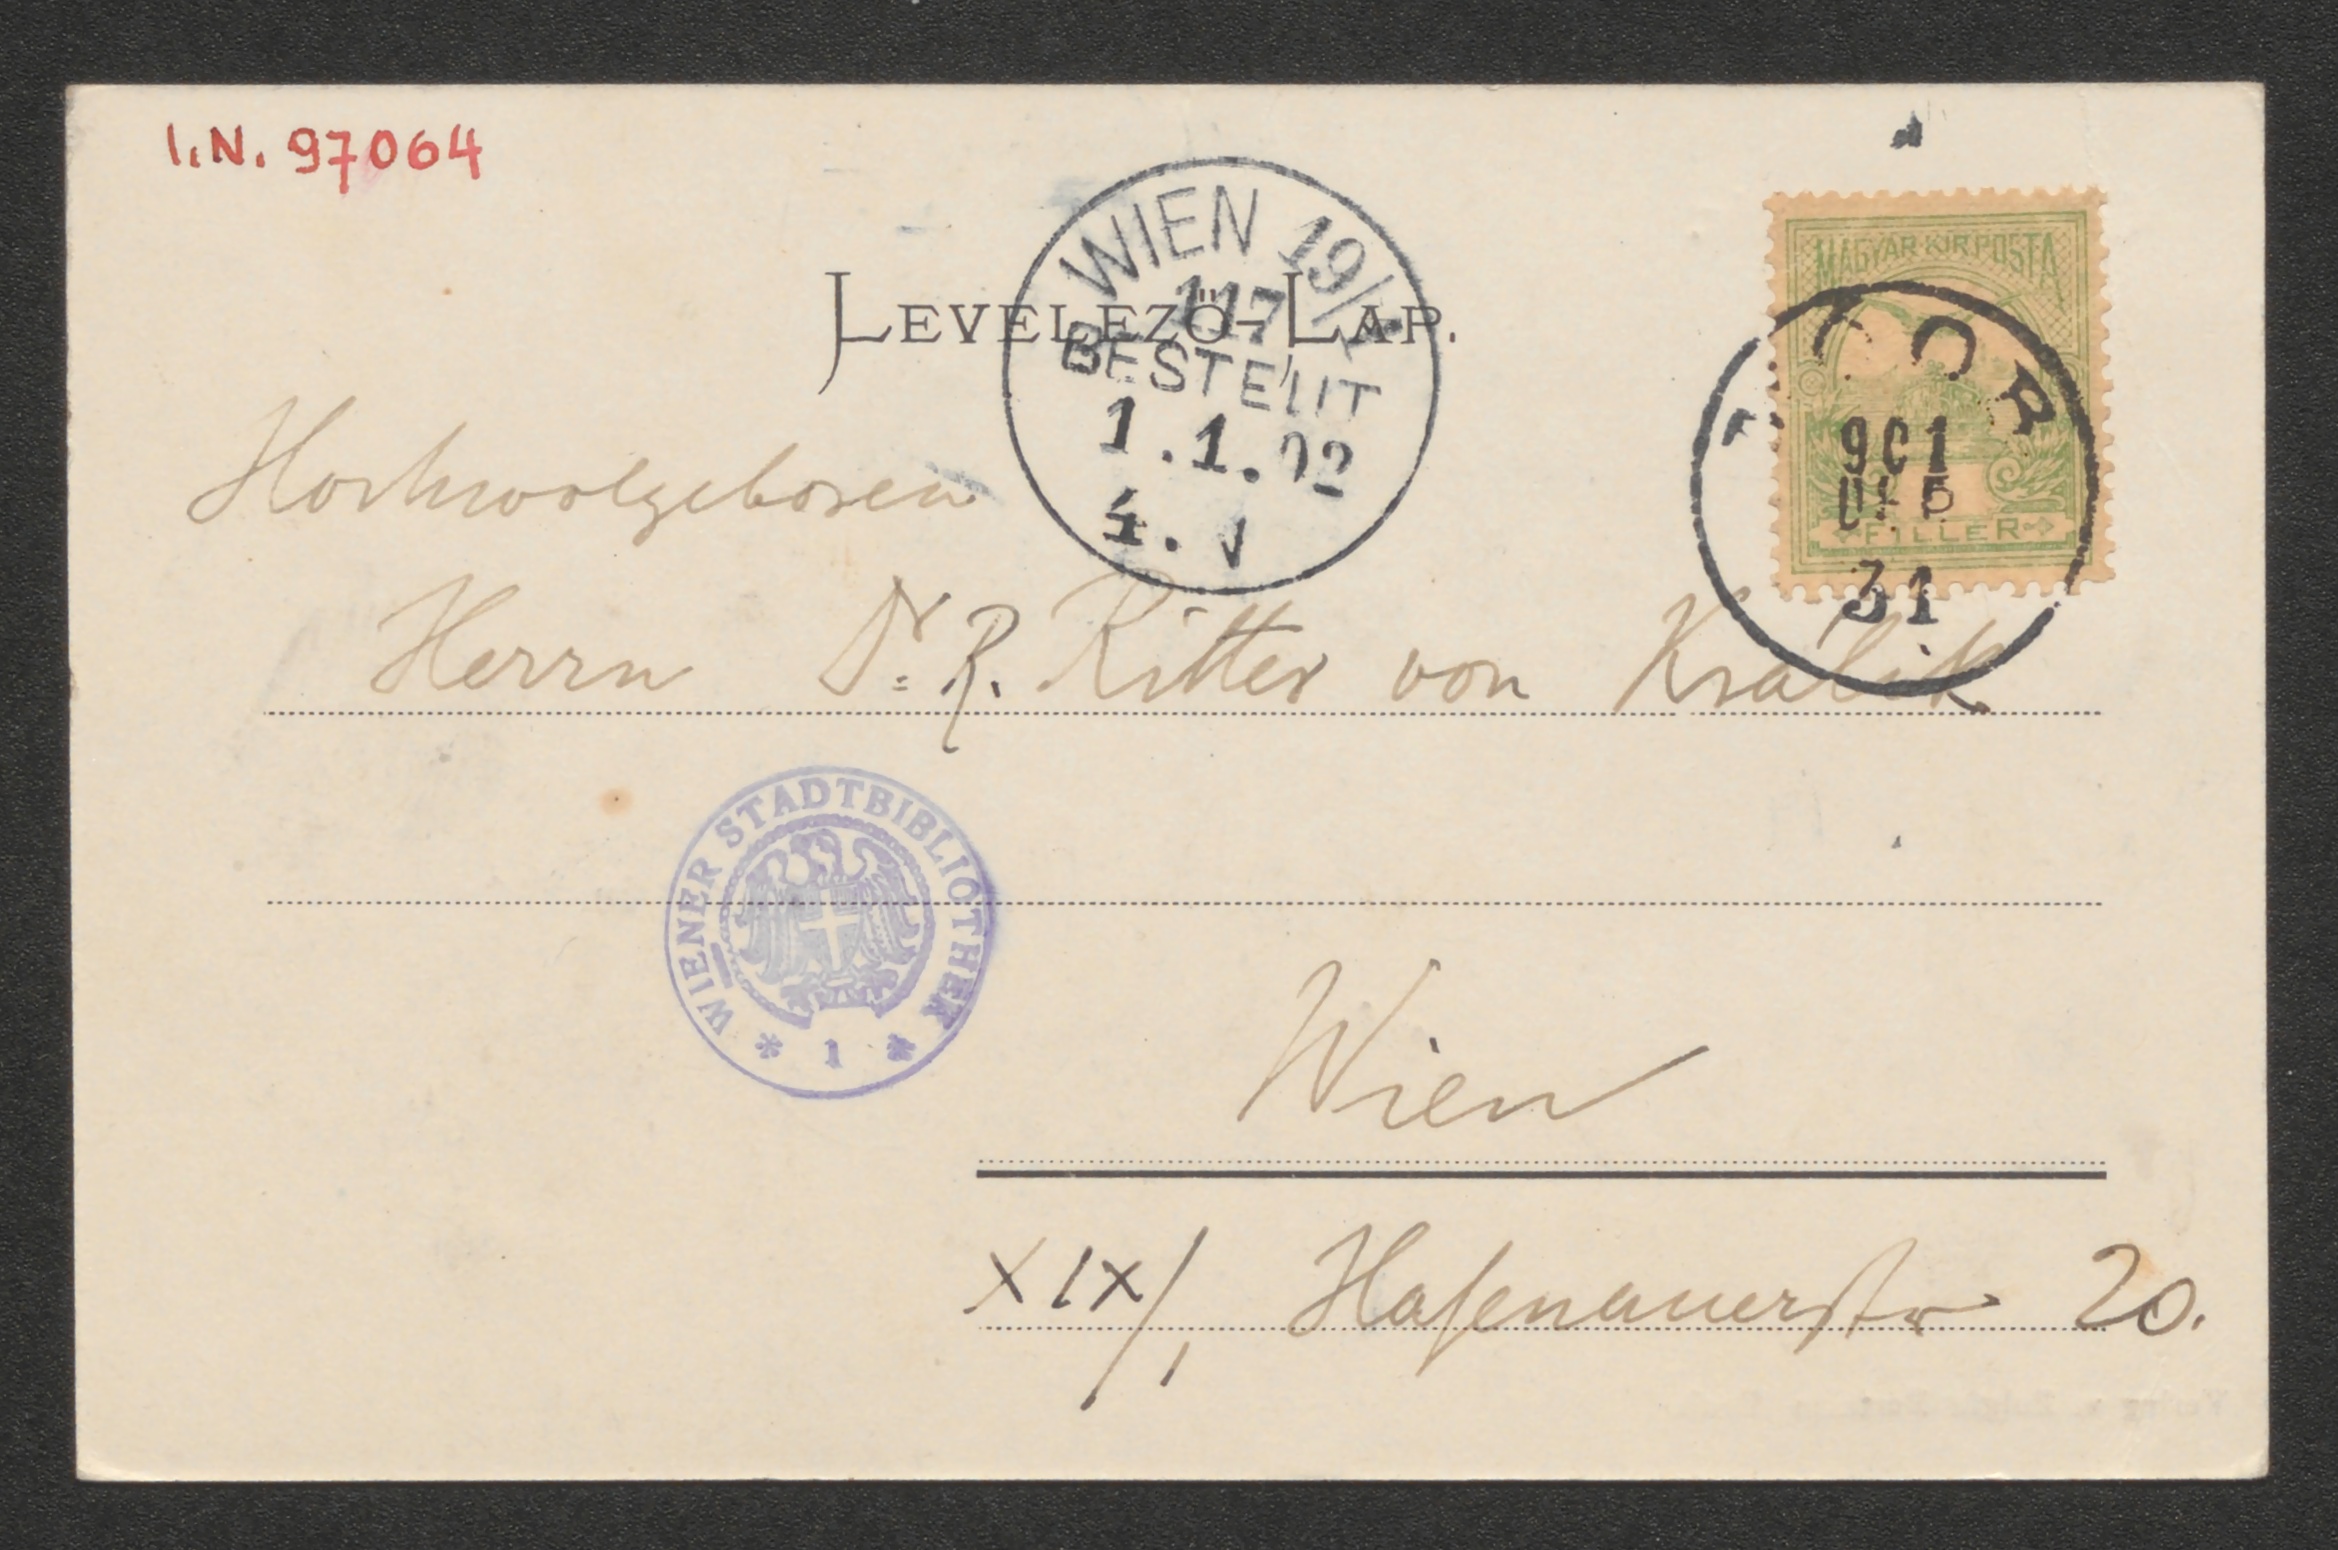 I.N. 97064
WIEN 19/1
117
BESTELLT
1.1.02
4. V
LEVELEZŐ-LAP.
MAGYAR KIR. POSTA
FILLER
901
31
Hochwolgeboren
Herrn Dr. R. Ritter von Kralik
WIENER STADTBIBLIOTHEK
* 1 *
Wien
XIX/1, Hasenauerstr 20.